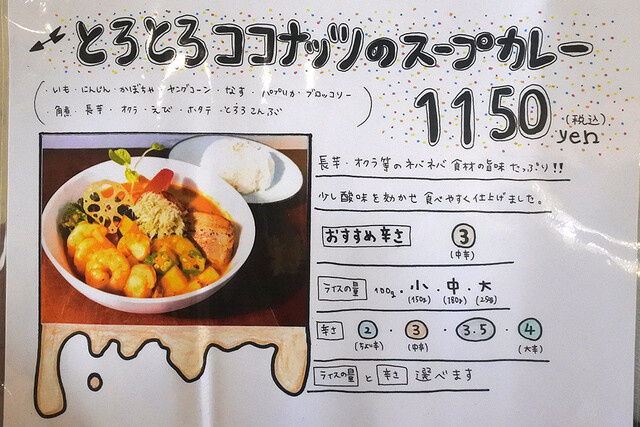 とろとろココナッツのスープカレー
(・いも・にんじん・かぼちゃ・ヤングコーン・なす・パプリカ・ブロッコリー
・角煮・長芋・オクラ・えび・ホタテ・とろろこんぶ)
1150 (税込) yen
長芋・オクラ等のネバネバ食材の旨味たっぷり!!
少し酸味を効かせ食べやすく仕上げました。
おすすめ辛さ 3 (中辛)
ライスの量 100g・小(150g)・中(180g)・大(250g)
辛さ 2(ちょい辛)・3(中辛)・3.5・4(大辛)
ライスの量 と 辛さ 選べます